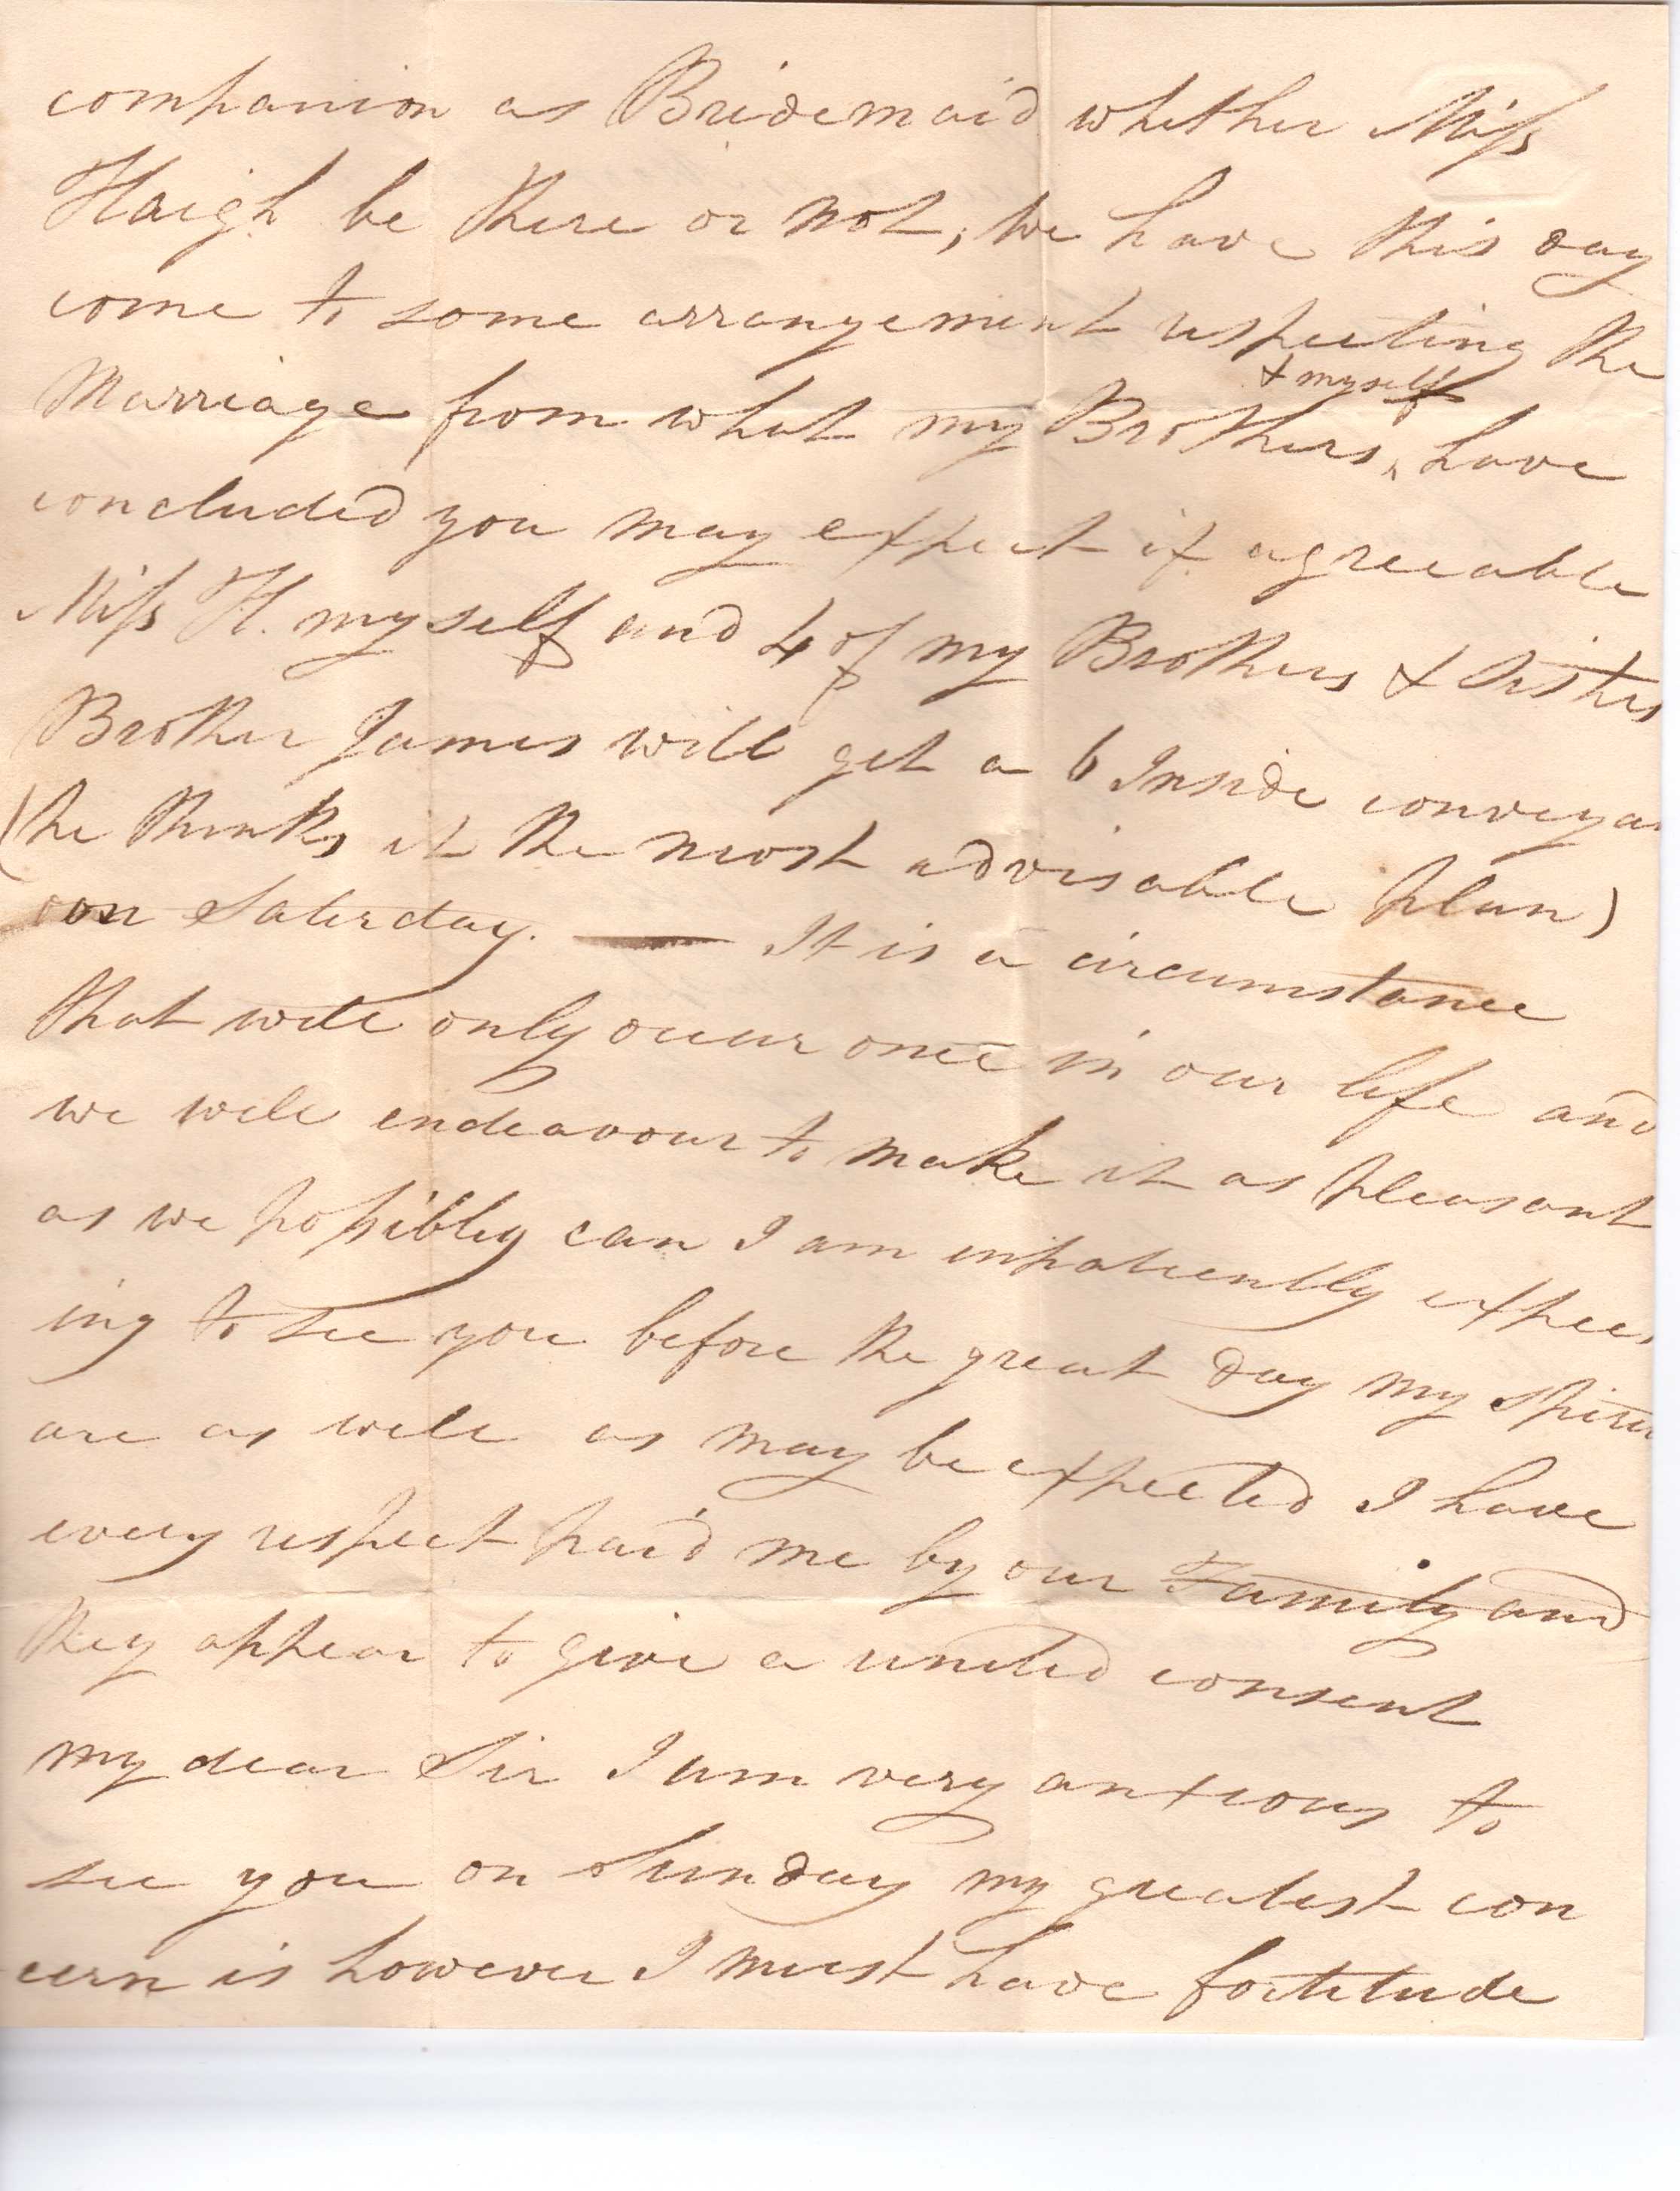 companion as Bridemaid whether Miss
Haigh be there or not, we have this day
come to some arrangement respecting the
& myself
Marriage from what my Brothers, have
concluded you may expect if agreeable
Miss H. myself and 4 of my Brothers & Sisters
Brother James will get a 6 Inside conveyan
(he thinks it the most advisable plan)
on Saturday. — It is a circumstance
that will only occur once in our life and
we will endeavour to make it as pleasant
as we possibly can I am inpatiently expect
ing to see you before the great day my spirits
are as well as may be expected I have
every respect paid me by our Family and
they appear to give a united consent
my dear Sir I am very anxious to
see you on Sunday my greatest con
cern is however I must have fortitude